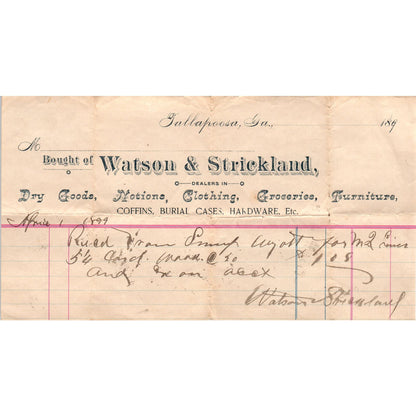 Tallapoosa, Ga., 189
M
Bought of Watson & Strickland,
DEALERS IN
Dry Goods, Notions, Clothing, Groceries, Furniture,
COFFINS, BURIAL CASES, HARDWARE, Etc.
April 1 1899
Recd from Wyatt for
54 Wood
and on acct
Watson & Strickland